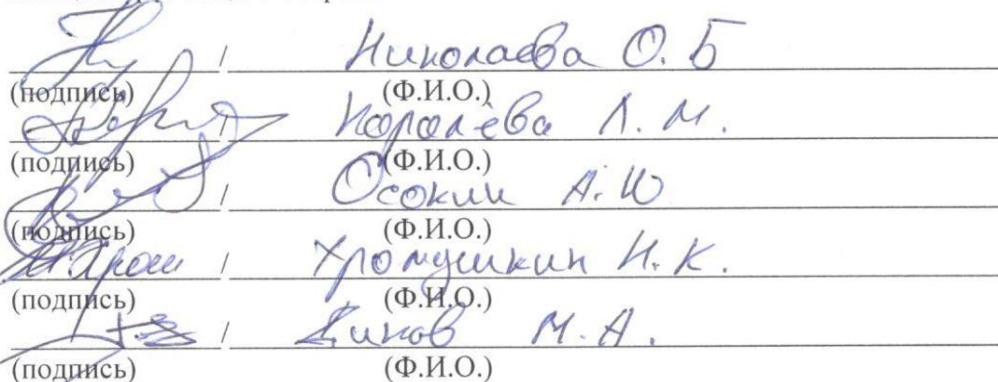 / Николаева О. Б
(подпись) (Ф.И.О.)
/ Королёва Л. М.
(подпись) (Ф.И.О.)
/ Осокин А. Ю
(подпись) (Ф.И.О.)
/ Хромушкин Н. К.
(подпись) (Ф.И.О.)
/ М. А.
(подпись) (Ф.И.О.)